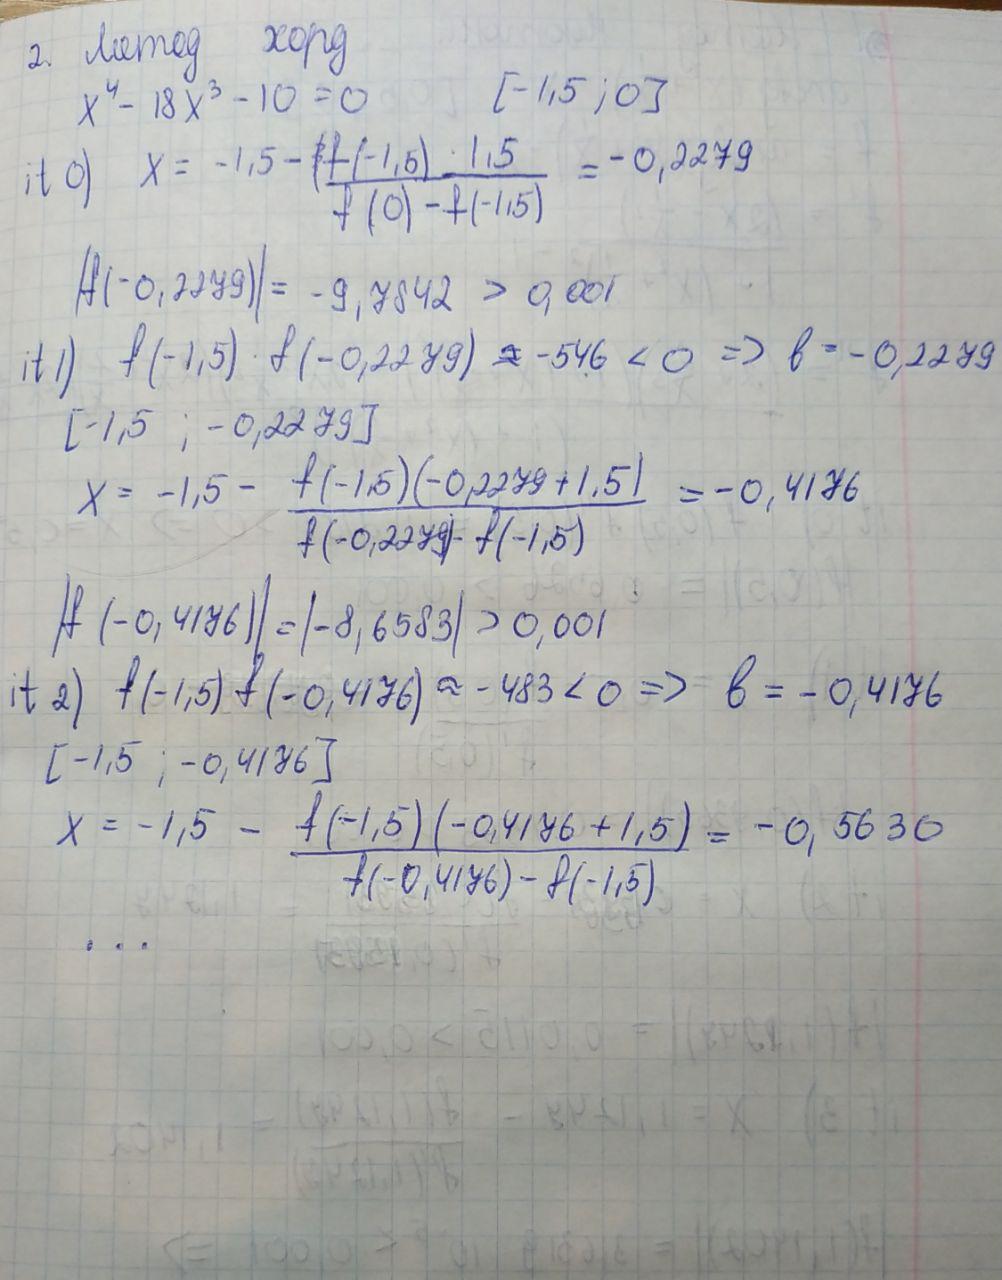 2. Метод хорд
x⁴ - 18x³ - 10 = 0 [-1,5 ; 0]
it 0) x = -1,5 - f(-1,5) · 1,5 / f(0) - f(-1,5) = -0,2279
|f(-0,2279)| = -9,7842 > 0,001
it 1) f(-1,5) · f(-0,2279) ≈ -546 < 0 => b = -0,2279
[-1,5 ; -0,2279]
x = -1,5 - f(-1,5)(-0,2279 + 1,5) / f(-0,2279) - f(-1,5) = -0,4176
|f(-0,4176)| = |-8,6583| > 0,001
it 2) f(-1,5) f(-0,4176) ≈ -483 < 0 => b = -0,4176
[-1,5 ; -0,4176]
x = -1,5 - f(-1,5)(-0,4176 + 1,5) / f(-0,4176) - f(-1,5) = -0,5630
...